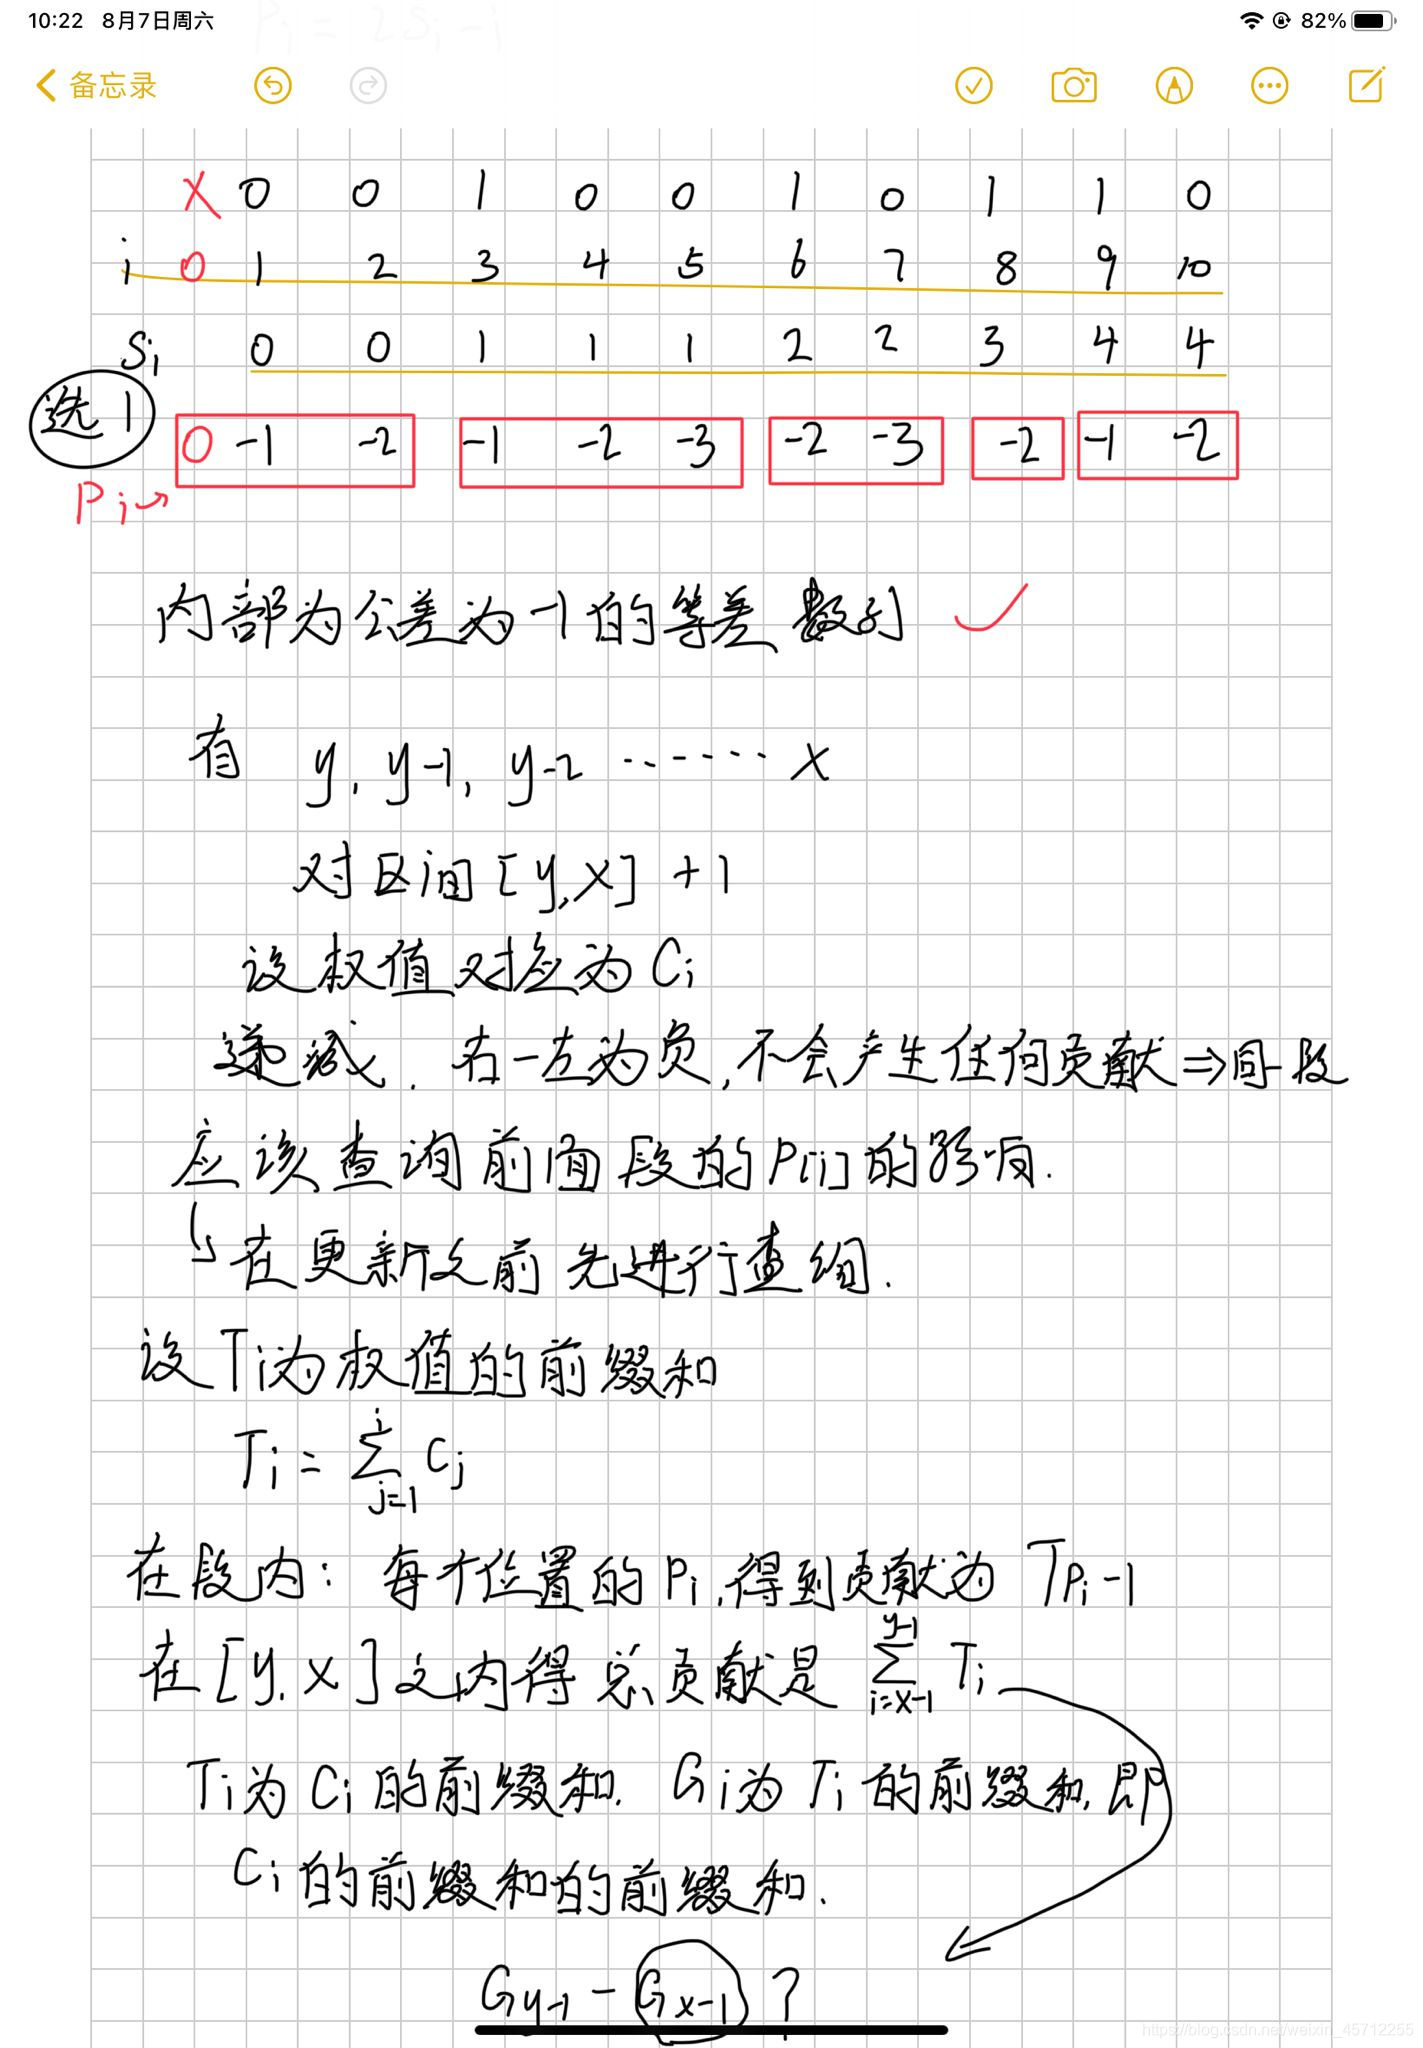 10:22 8月7日周六 82%
P i = 2 S i - i
备忘录
X 0 0 1 0 0 1 0 1 1 0
i 0 1 2 3 4 5 6 7 8 9 10
Si 0 0 1 1 1 2 2 3 4 4
选1 0 -1 -2 -1 -2 -3 -2 -3 -2 -1 -2
Pi→
内部为公差为-1的等差数列 ✓
有 y, y-1, y-2 ······· x
对区间[y,x] +1
设权值对应为Ci
递减. 右-左为负,不会产生任何贡献⇒同一段
应该查询前面段的P[i]的影响.
↳在更新之前先进行查询.
设Ti为权值的前缀和
Ti = ∑_{j=1}^{i} Cj
在段内: 每个位置的Pi,得到贡献为 T_{Pi-1}
在[y,x]之内得总贡献是 ∑_{i=x-1}^{y-1} Ti
Ti为Ci的前缀和. Gi为Ti的前缀和,即
Ci的前缀和的前缀和.
G_{y-1} - G_{x-1} ?
https://blog.csdn.net/weixin_45712255